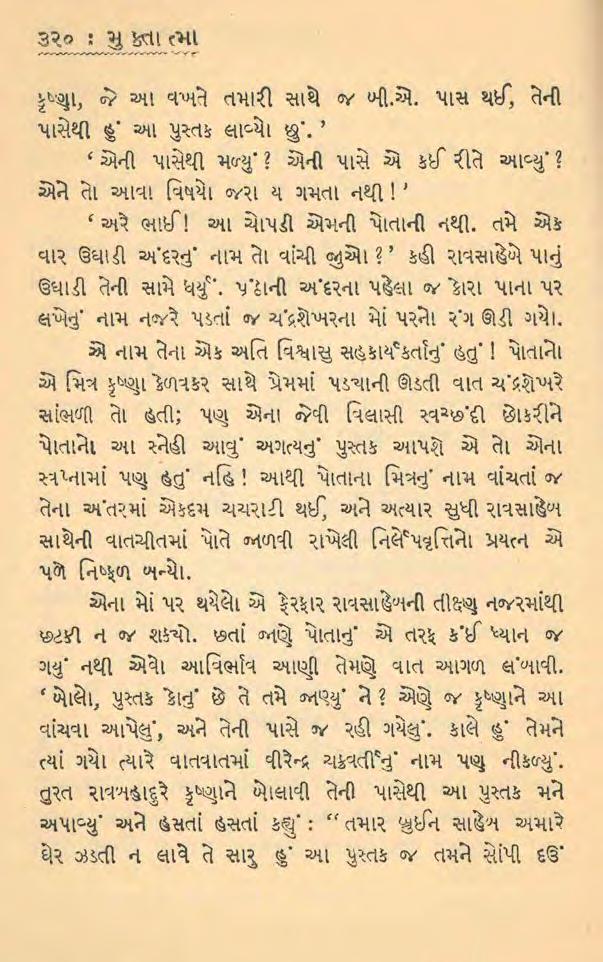 ૩૨૦ : મુક્તાત્મા
કૃષ્ણા, જે આ વખતે તમારી સાથે જ બી.એ. પાસ થઈ, તેની
પાસેથી હું આ પુસ્તક લાવ્યો છું.’
‘એની પાસેથી મળ્યું? એની પાસે એ કઈ રીતે આવ્યું?
એને તો આવા વિષયો જરા ય ગમતા નથી!’
‘અરે ભાઈ! આ ચોપડી એમની પોતાની નથી. તમે એક
વાર ઉઘાડી અંદરનું નામ તો વાંચી જુઓ?’ કહી રાવસાહેબે પાનું
ઉઘાડી તેની સામે ધર્યું. પૂંઠાની અંદરના પહેલા જ કોરા પાના પર
લખેનું નામ નજરે પડતાં જ ચંદ્રશેખરના મોં પરનો રંગ ઊડી ગયો.
એ નામ તેના એક અતિ વિશ્વાસુ સહકાર્યકર્તાનું હતું! પોતાનો
એ મિત્ર કૃષ્ણા કેળવકર સાથે પ્રેમમાં પડયાની ઊડતી વાત ચંદ્રશેખરે
સાંભળી તો હતી; પણ એના જેવી વિલાસી સ્વચ્છંદી છોકરીને
પોતાનો આ સ્નેહી આવું અગત્યનું પુસ્તક આપશે એ તો એના
સ્વપ્નામાં પણ હતું નહિ! આથી પોતાના મિત્રનું નામ વાંચતાં જ
તેના અંતરમાં એકદમ ચચરાટી થઈ, અને અત્યાર સુધી રાવસાહેબ
સાથેની વાતચીતમાં પોતે જાળવી રાખેલી નિર્લેપવૃત્તિનો પ્રયત્ન એ
પળે નિષ્ફળ બન્યો.
એના મોં પર થયેલો એ ફેરફાર રાવસાહેબની તીક્ષ્ણ નજરમાંથી
છટકી ન જ શક્યો. છતાં જાણે પોતાનું એ તરફ કંઈ ધ્યાન જ
ગયું નથી એવો આવિર્ભાવ આણી તેમણે વાત આગળ લંબાવી.
‘બોલો, પુસ્તક કોનું છે તે તમે જાણ્યું ને? એણે જ કૃષ્ણાને આ
વાંચવા આપેલું, અને તેની પાસે જ રહી ગયેલું. કાલે હું તેમને
ત્યાં ગયો ત્યારે વાતવાતમાં વીરેન્દ્ર ચક્રવર્તીનું નામ પણ નીકળ્યું.
તુરત રાવબહાદુરે કૃષ્ણાને બોલાવી તેની પાસેથી આ પુસ્તક મને
અપાવ્યું અને હસતાં હસતાં કહ્યું : “તમાર બ્રુઈન સાહેબ અમારે
ઘેર ઝડતી ન લાવે તે સારુ હું આ પુસ્તક જ તમને સોંપી દઉં